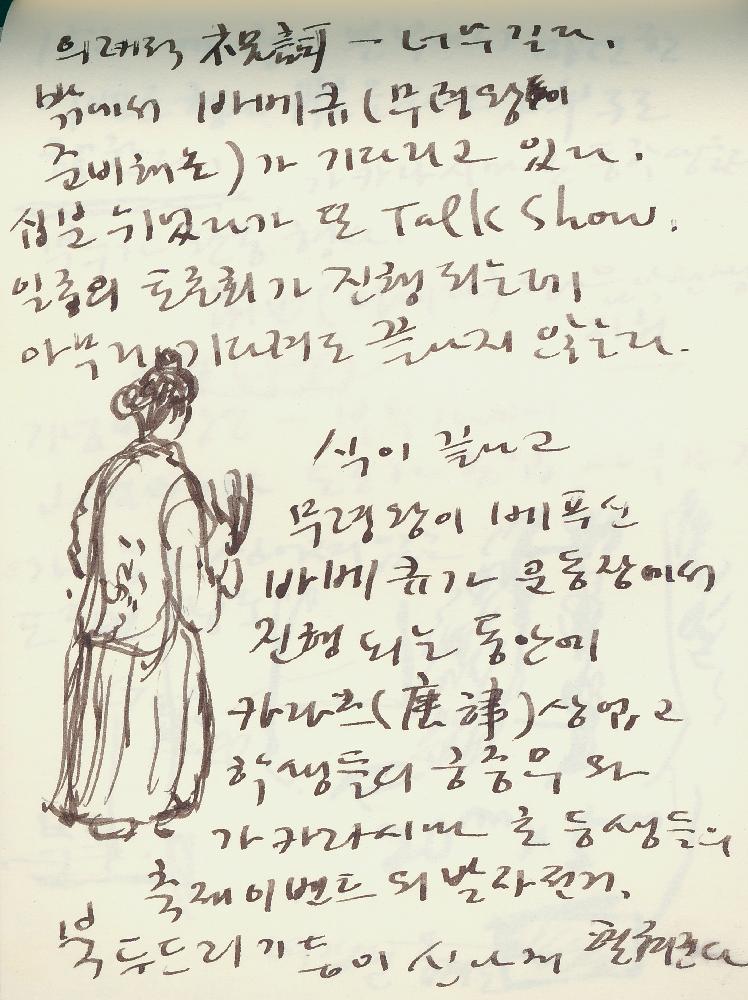 의례적 祝辭 - 너무 길다.
밖에서 바베큐(무령왕이
준비해논)가 기다리고 있다.
십분 쉬었다가 또 Talk Show.
일종의 토론회가 진행되는데
아무리 기다려도 끝나지 않는다.
식이 끝나고
무령왕이 베푸신
바베큐가 운동장에서
진행되는 동안에
카라츠(唐津)상업고
학생들의 궁중무와
가카라시마 초등생들의
축제이벤트의 발자전거,
북 두드리기 등이 신나게 펼쳐진다